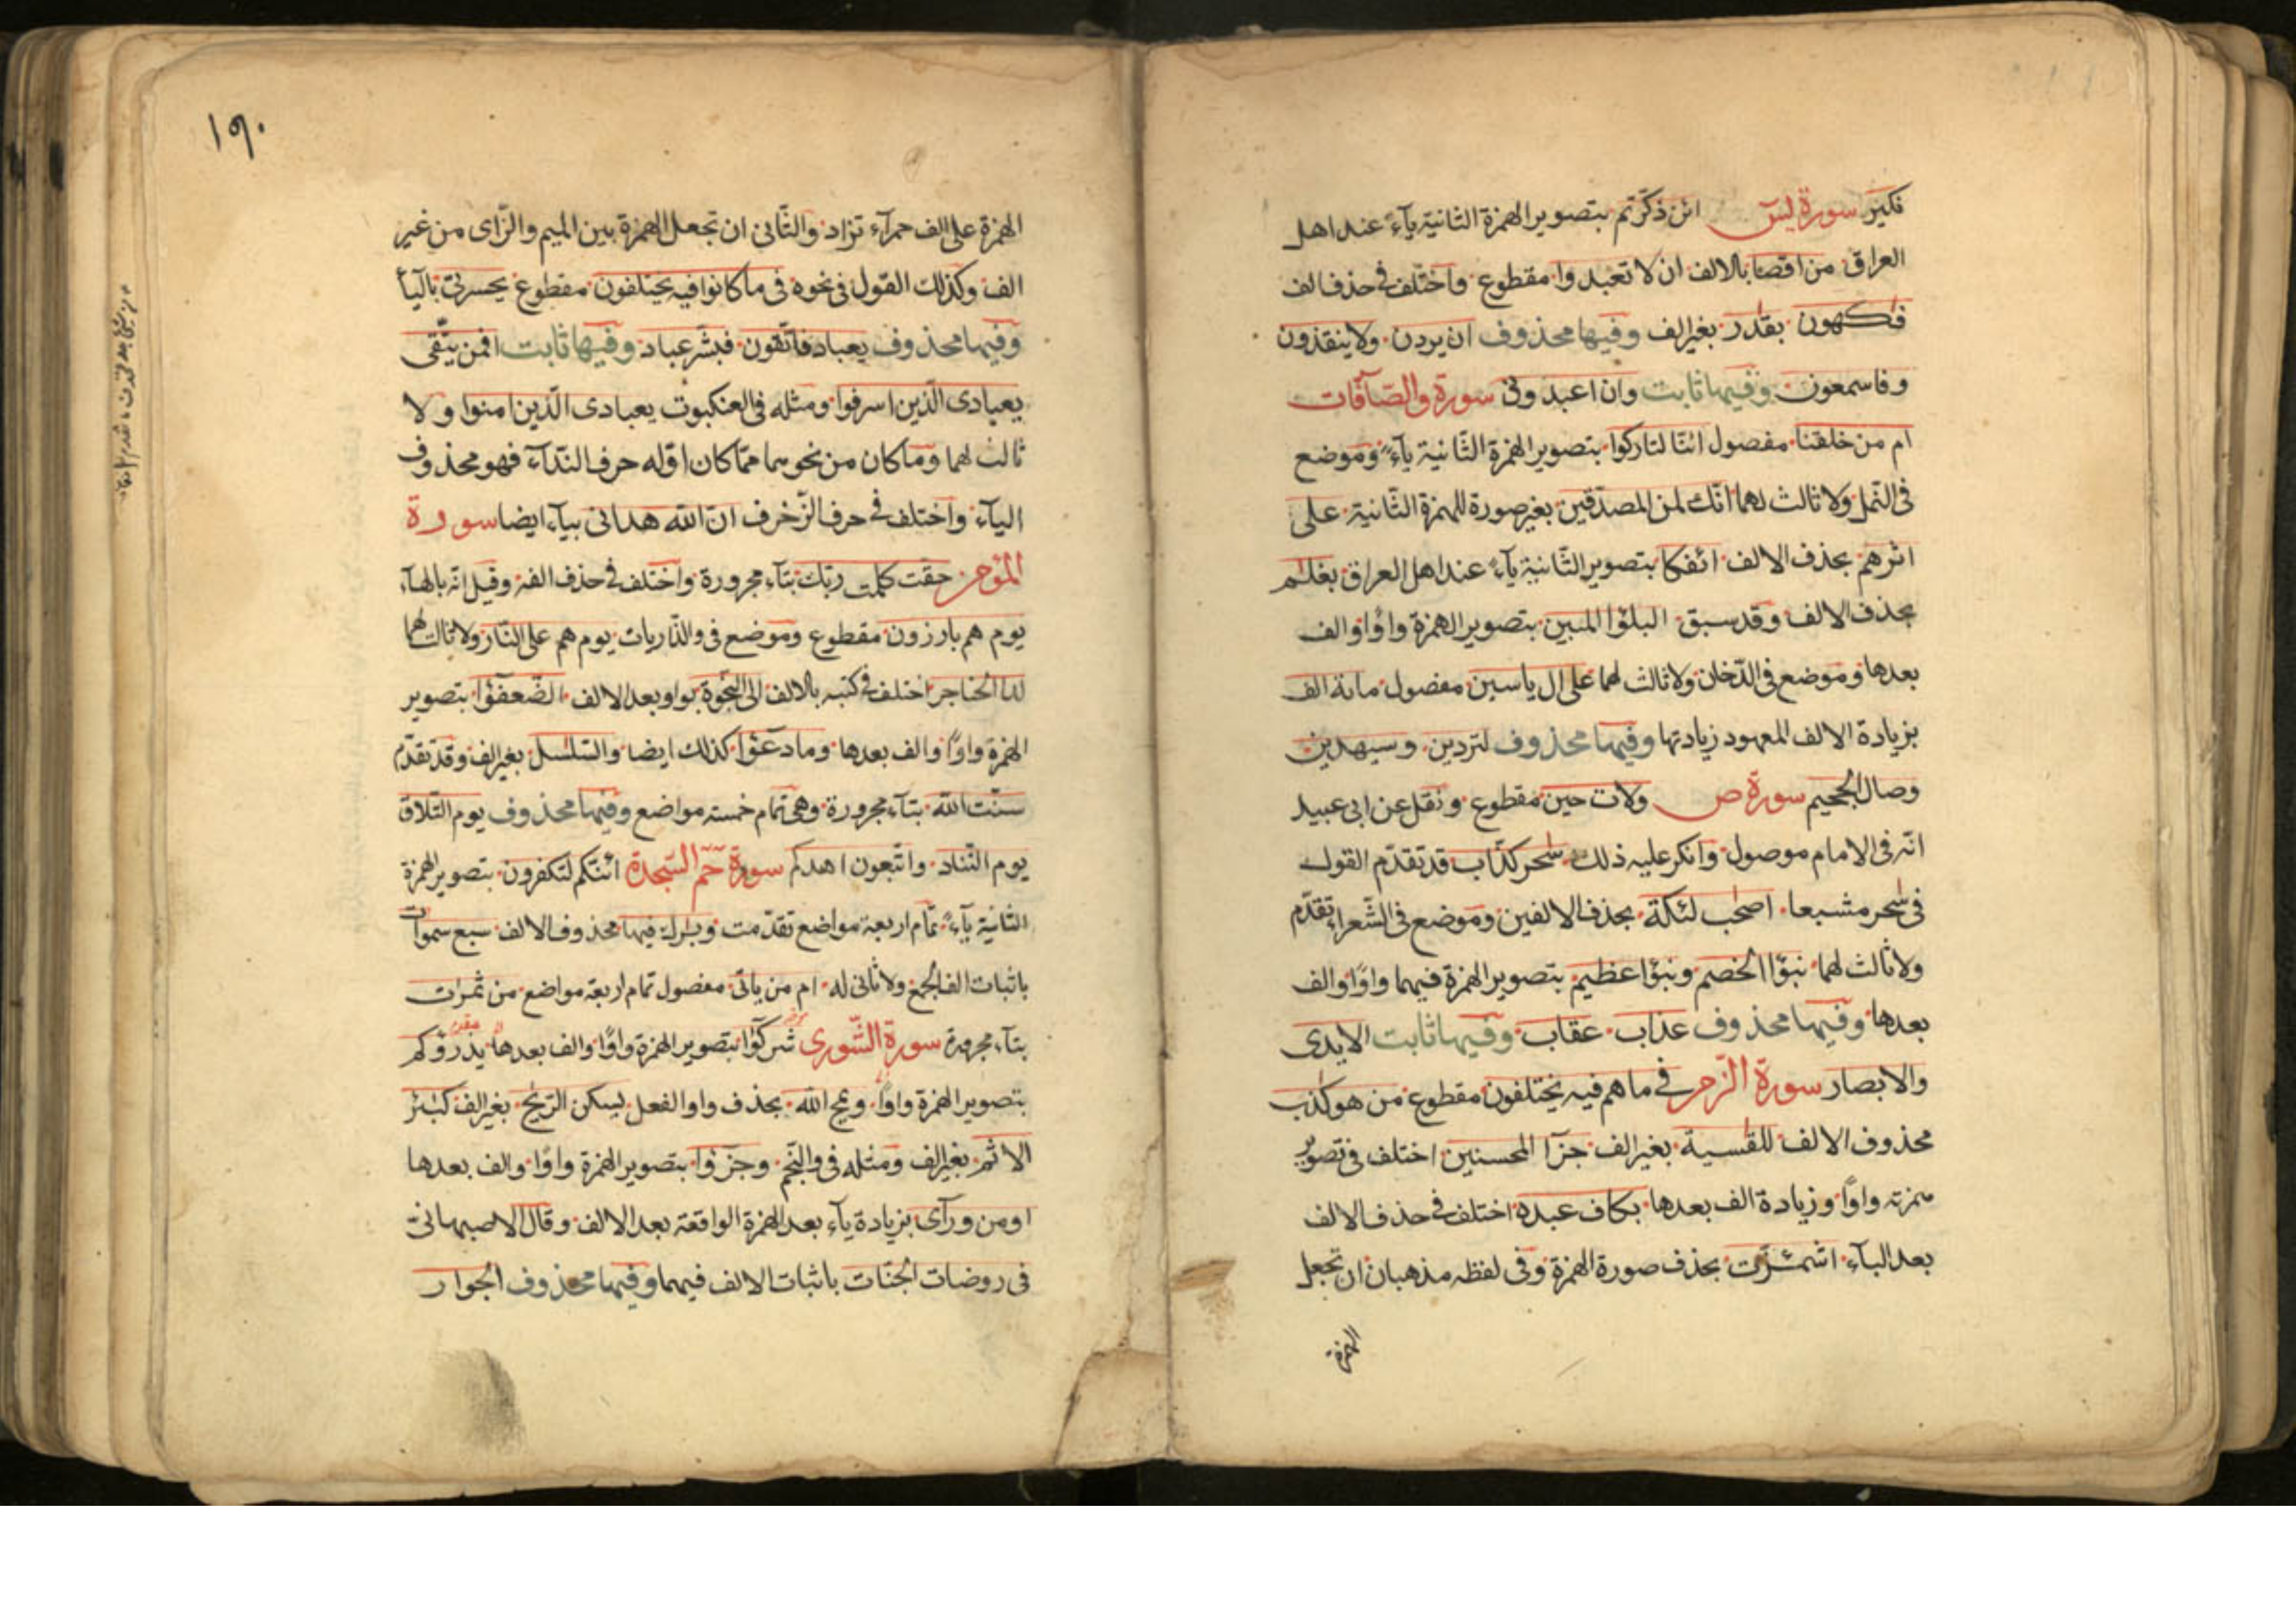 نكير سورة يس ائن ذكرتم بتصوير الهمزة الثانية يآء عند اهل
العراق من اقصا بالالف ان لا تعبدوا مقطوع واختلف فى حذف الف
فكهون بقدر بغير الف وفيها محذوف ان يردن ولا ينقذون
وفاسمعون وفيها ثابت وان اعبدونى سورة والصّآفّات
ام من خلقنا مفصول ائنّا لتاركوا بتصوير الهمزة الثّانية يآء وموضع
فى النّمل ولا ثالث لهما انّك لمن المصدّقين بغير صورة للهمزة الثّانية على
اثرهم بحذف الالف ائفكا بتصوير الثّانية يآء عند اهل العراق بغلم
بحذف الالف وقد سبق البلؤا المبين بتصوير الهمزة واوًا والف
بعدها وموضع فى الدّخان ولا ثالث لهما على ال ياسين مفصول مائة الف
بزيادة الالف المعهود زيادتها وفيها محذوف لتردين وسيهدين
وصال الجحيم سورة ص ولات حين مقطوع ونقل عن ابى عبيد
انّه فى الامام موصول وانكر عليه ذلك سحر كذّاب قد تقدّم القول
فى سحر مشبعا اصحب لئكة بحذف الالفين وموضع فى الشّعراء تقدّم
ولا ثالث لهما نبؤا الخصم ونبؤا عظيم بتصوير الهمزة فيهما واوًا والف
بعدها وفيها محذوف عذاب عقاب وفيها ثابت الايدى
والابصار سورة الزّمر فى ما هم فيه يختلفون مقطوع من هو كذب
محذوف الالف للقسية بغير الف جزآ المحسنين اختلف فى تصوير
همزته واوًا وزيادة الف بعدها بكاف عبده اختلف فى حذف الالف
بعد البآء اشمئزّت بحذف صورة الهمزة وفى لفظه مذهبان ان تجعل
الهمزة
١٩٠
الهمزة على الف حمرآء تزاد والثّانى ان تجعل الهمزة بين الميم والزّاى من غير
الف وكذلك القول فى نحوه فى ما كانوا فيه يختلفون مقطوع يحسرتى باليآ
وفيها محذوف يعباد فاتّقون فبشّر عباد وفيها ثابت افمن يتّقى
يعبادى الّذين اسرفوا ومثله فى العنكبوت يعبادى الّذين امنوا ولا
ثالث لهما وما كان من نحوهما ممّا كان اوّله حرف النّدآء فهو محذوف
اليآء واختلف فى حرف الزّخرف انّ الله هدانى بيآء ايضا سورة
المؤمن حقّت كلمت ربّك بتآء مجرورة واختلف فى حذف الفه وقيل انّه بالهآء
يوم هم بارزون مقطوع وموضع فى والذّاريات يوم هم على النّار ولا ثالث لهما
لدا الحناجر اختلف فى كتبه بالالف الى النّجوة بواو بعد الالف الضّعفؤا بتصوير
الهمزة واوًا والف بعدها وما دعؤا كذلك ايضا والسّلسل بغير الف وقد تقدّم
سنّت الله بتآء مجرورة وهى تمام خمسة مواضع وفيها محذوف يوم التّلاق
يوم التّناد واتّبعون اهدكم سورة حم السّجدة ائنّكم لتكفرون بتصوير الهمزة
الثّانية يآء تمام اربعة مواضع تقدّمت وبرك فيها محذوف الالف سبع سموات
باثبات الف الجمع ولا ثانى له ام من ياتى مفصول تمام اربعة مواضع من ثمرات
بتآء مجرورة سورة الشّورى شركؤا بتصوير الهمزة واوًا والف بعدها يذرؤكم
بتصوير الهمزة واوًا ويمح الله بحذف واو الفعل يسكن الرّيح بغير الف كبئر
الاثم بغير الف ومثله فى والنّجم وجزؤا بتصوير الهمزة واوًا والف بعدها
او من ورآى بزيادة يآء بعد الهمزة الواقعة بعد الالف وقال الاصبهانى
فى روضات الجنّات باثبات الالف فيهما وفيها محذوف الجوار